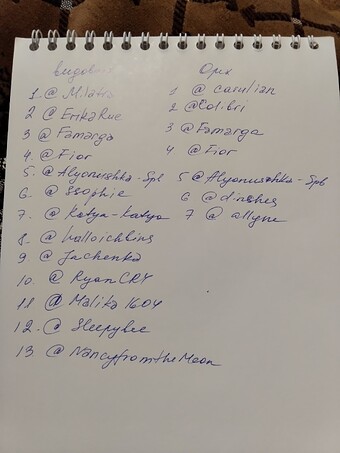 1. @ Milatra
2 @ ErikaRue
3 @ Famarga
4. @ Fior
5. @ Alyonushka-Spb
6. @ Ssophie
7. @ Katya-katya
8. @ halloichbins
9. @ Jachenka
10. @ RyonCRY
11 @ Malika 1604
12. @ Sleepybee
13 @ NancyfromtheMoon
Орих
1 @ caeulian
2 @Colibri
3 @Famarga
4 @ Fior
5 @Alyonushka-Spb
6 @ dinshes
7 @ allyne